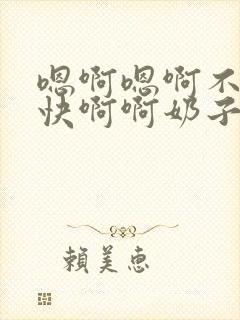 嗯啊嗯啊不
快啊啊奶子
賴美惠